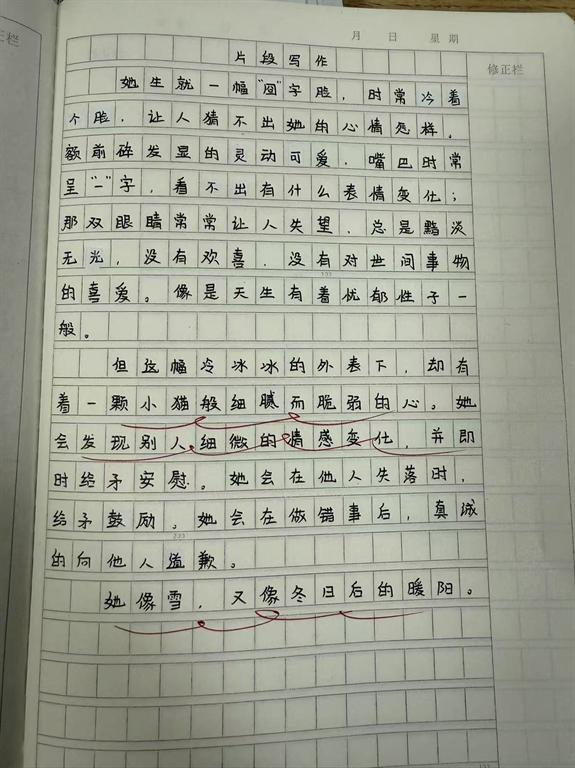 正栏
月 日 星期
修正栏
片段写作
她生就一幅“囧”字脸，时常冷着
个脸，让人猜不出她的心情怎样。
额前碎发显的灵动可爱，嘴巴时常
呈“一”字，看不出有什么表情变化；
那双眼睛常常让人失望，总是黯淡
无光，没有欢喜，没有对世间事物
的喜爱。像是天生有着忧郁性子一
般。
但这幅冷冰冰的外表下，却有
着一颗小猫般细腻而脆弱的心。她
会发现别人细微的情感变化，并即
时给矛安慰。她会在他人失落时，
给矛鼓励，她会在做错事后，真诚
的向他人道歉。
她像雪，又像冬日后的暖阳。